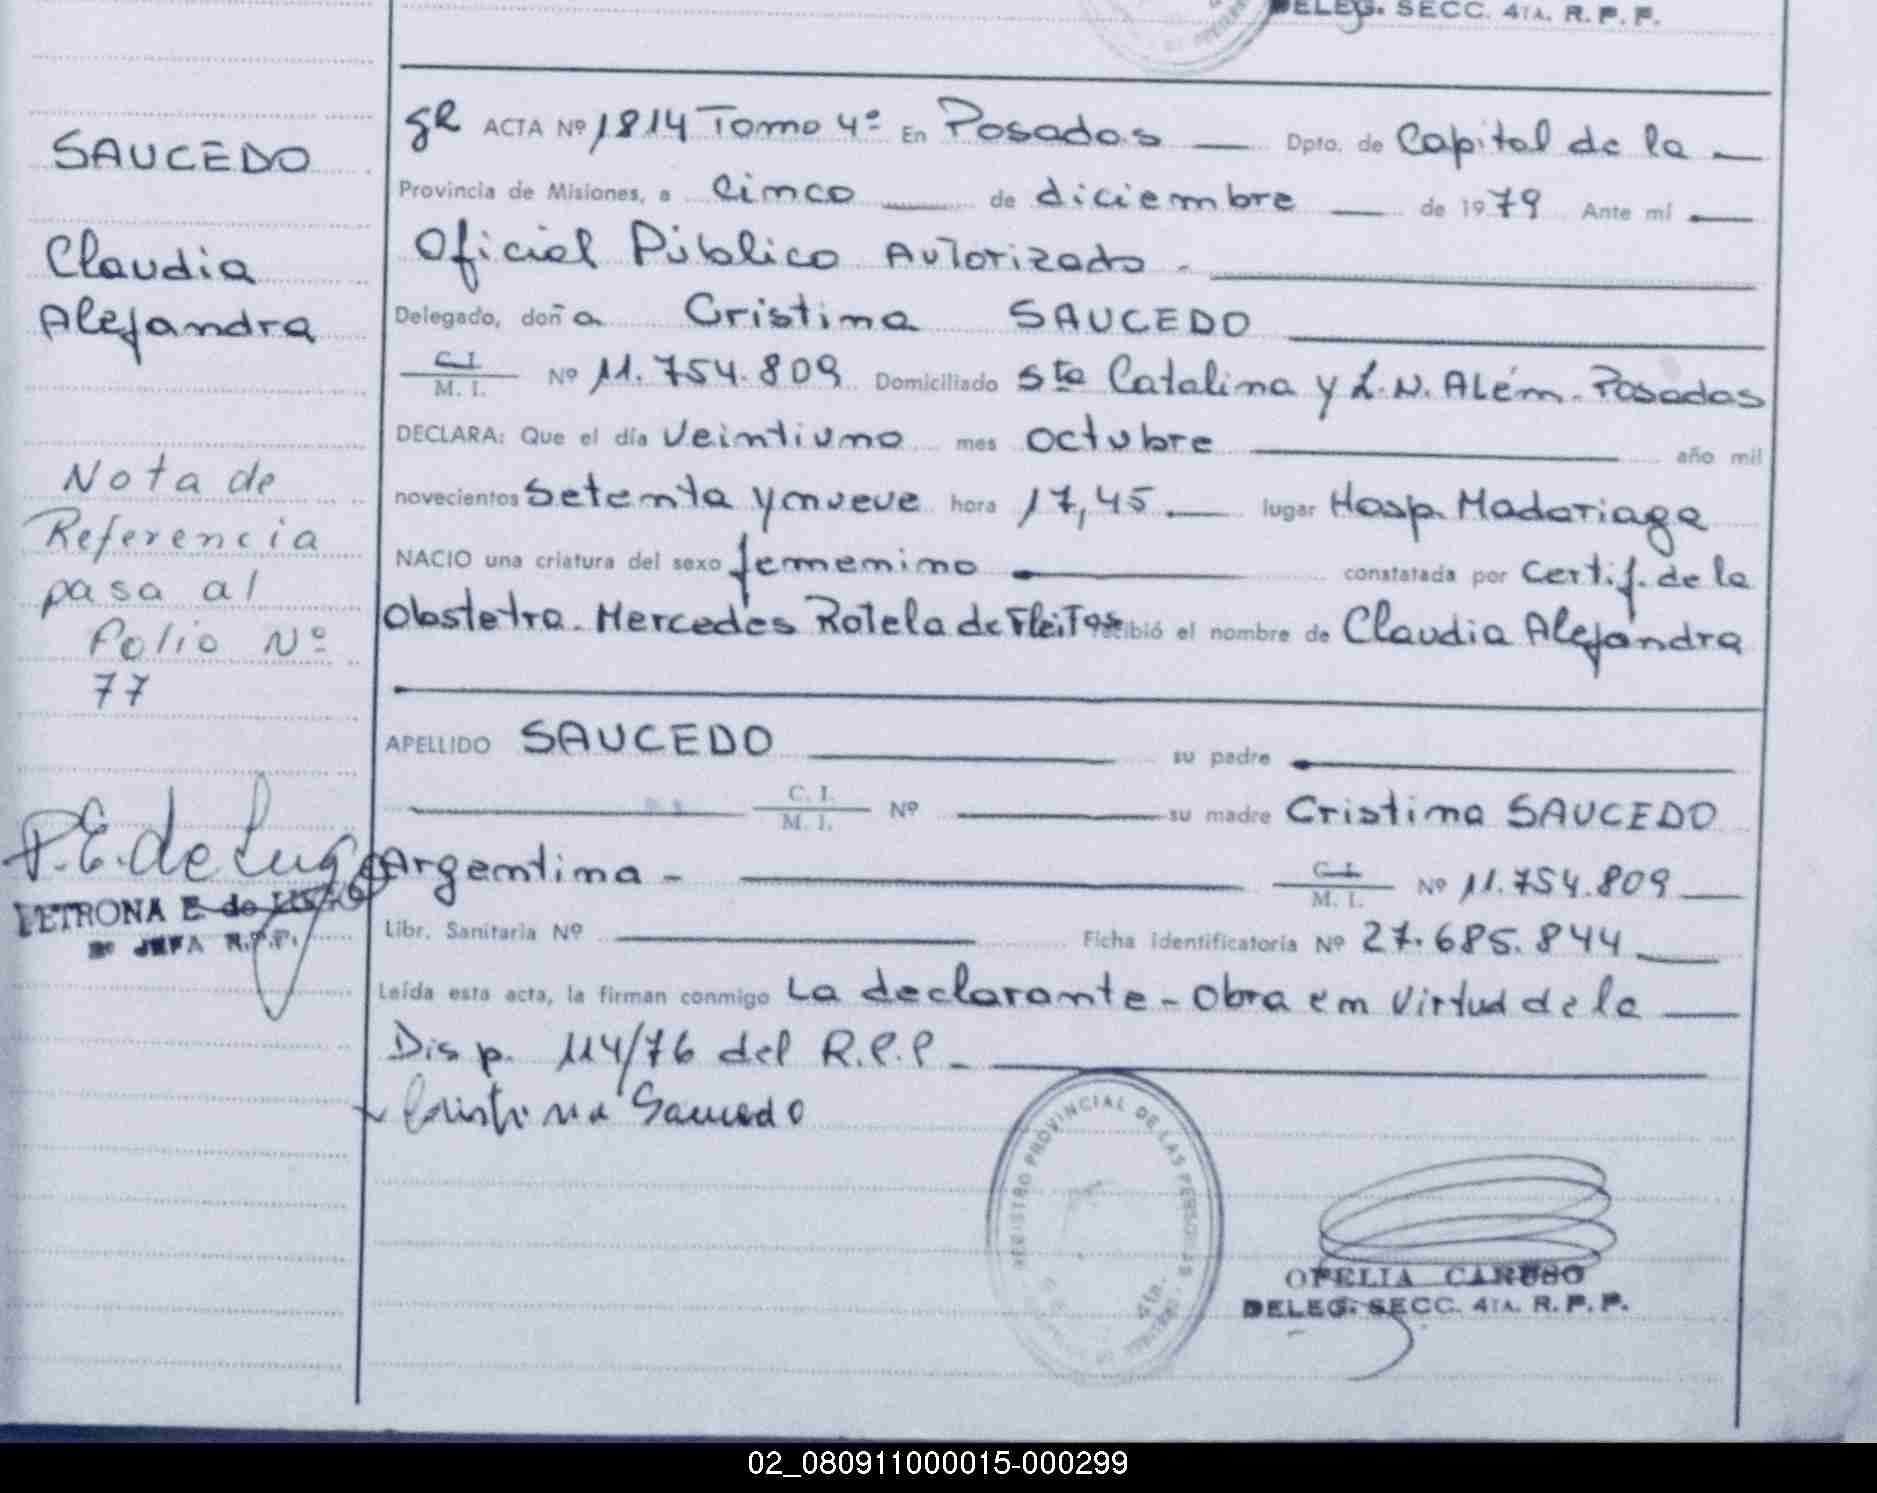 DELEG. SECC. 4TA. R. P. P.
SAUCEDO
Claudia
Alejandra
Nota de
Referencia
pasa al
Folio Nº
77
P.E. de Lugo
PETRONA E. de LUGO
2º JEFA R.P.P.
ACTA Nº 1814 Tomo 4º En Posadas Dpto. de Capital de la
Provincia de Misiones, a cinco de diciembre de 1979 Ante mí
Oficial Público Autorizado -
Delegado, doña Cristina SAUCEDO
C.I. M. I. Nº 11.754.809 Domiciliado Sta Catalina y L.N. Além. Posadas
DECLARA: Que el día Veintiuno mes octubre año mil
novecientos setenta y nueve hora 17,45 lugar Hosp. Madariaga
NACIO una criatura del sexo femenino constatada por Certif. de la
Obstetra. Mercedes Rotela de Fleitas recibió el nombre de Claudia Alejandra
APELLIDO SAUCEDO su padre
C. I. M. I. Nº su madre Cristina SAUCEDO
Argentina - C. I. M. I. Nº 11.754.809
Libr. Sanitaria Nº Ficha identificatoria Nº 27.685.844
Leída esta acta, la firman conmigo La declarante - Obra en Virtud de la
Disp. 114/76 del R.P.P -
Cristina Saucedo
REGISTRO PROVINCIAL DE LAS PERSONAS
4ta.
OFELIA CARUSO
DELEG. SECC. 4TA. R. P. P.
02_080911000015-000299